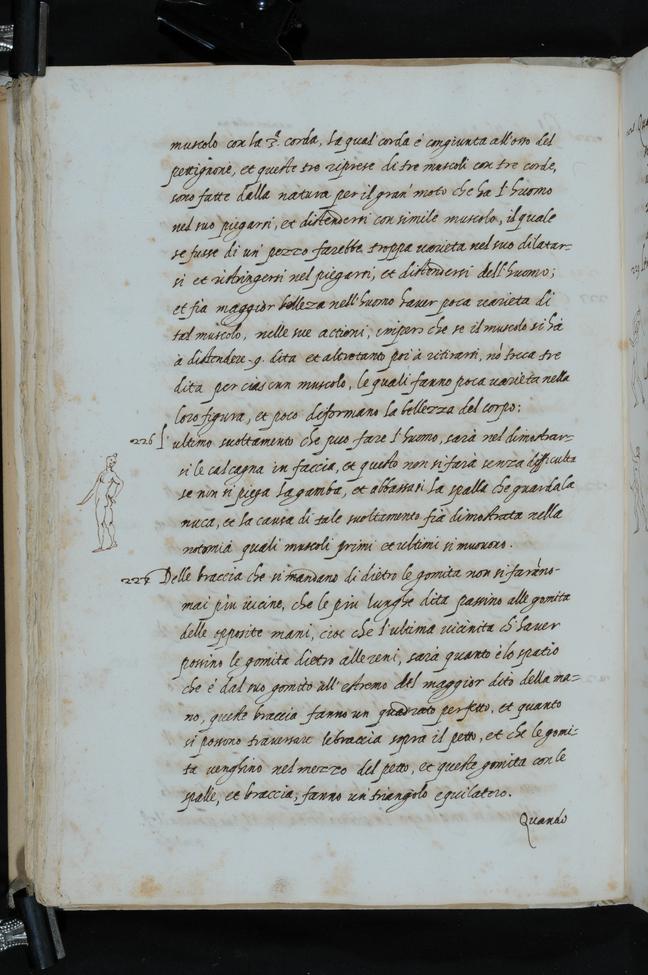 muscolo con la 3.ª corda, la qual corda è congiunta all'osso del
pettignone, et queste tre riprese di tre muscoli con tre corde,
sono fatte dalla natura per il gran moto che ha l'huomo
nel suo piegarsi, et distendersi con simile muscolo, il quale
se fusse di un pezzo farebbe troppa varieta nel suo dilatar=
si et ristringersi nel piegarsi, et distendersi dell'huomo;
et fia maggior bellezza nell'huomo haver poca varieta di
tal muscolo, nelle sue actioni, imperò che se il muscolo si hà
à distendere .9. dita et altretanto poi à ritirarsi, nō tocca tre
dita per ciascun muscolo, le quali fanno poca varietà nella
loro figura, et poco diformano la bellezza del corpo:
226 L'ultimo svoltamento che può fare l'huomo, sarà nel dimostrar=
si le calcagna in faccia, et questo non si farà senza difficulta
se non si piega la gamba, et abbassasi la spalla che guarda la
nuca, et la causa di tale svoltamento fia dimostrata nella
notomia quali muscoli primi et ultimi si muovono.
227 Delle braccia che si mandano di dietro le gomita non si faranno
mai più vicine, che le più lunghe dita passino alle gomita
delle opposite mani, cioè che l'ultima vicinita ch'haver
possino le gomita dietro alle reni, sarà quanto è lo spatio
che è dal suo gomito all'estremo del maggior dito della ma=
no, queste braccia fanno un quadrato perfetto, et quanto
si possono traversare le braccia sopra il petto, et che le gomi=
ta venghino nel mezzo del petto, et queste gomita con le
spalle, et braccia, fanno un triangolo equilatero.
Quando